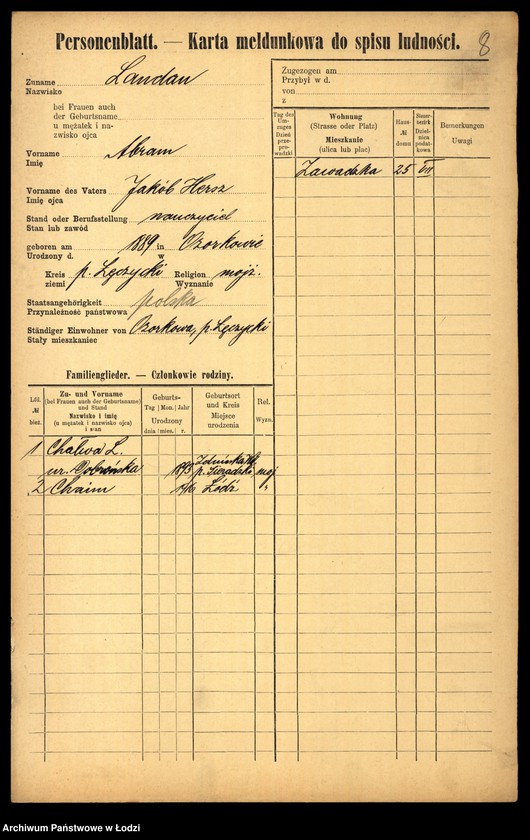 Personenblatt. — Karta meldunkowa do spisu ludności.
8
Zuname Landau
Nazwisko
bei Frauen auch
der Geburtsname
u mężatek i na-
zwisko ojca
Vorname Abram
Imię
Vorname des Vaters Jakób Hersz
Imię ojca
Stand oder Berufsstellung nauczyciel
Stan lub zawód
geboren am 1889 in Ozorkowie
Urodzony d. w
Kreis p. Łęczycki Religion mojż.
ziemi Wyznanie
Staatsangehörigkeit polska
Przynależność państwowa
Ständiger Einwohner von Ozorkowa, p. Łęczycki
Stały mieszkaniec
Zugezogen am
Przybył w d.
von
z
Tag des Um-zuges Dzień prze-pro-wadzki
Wohnung (Strasse oder Platz) Mieszkanie (ulica lub plac)
Haus- № domu
Steuer-bezirk Dziel-nica podat-kowa
Bemerkungen Uwagi
Zawadzka 25 VII
Familienglieder. — Członkowie rodziny.
Lfd. № bież.
Zu- und Vorname (bei Frauen auch der Geburtsname) und Stand Nazwisko i imię (u mężatek i nazwisko ojca) i stan
Geburts- Tag Mon. Jahr Urodzony dnia mies. r.
Geburtsort und Kreis Miejsce urodzenia
Rel. Wyzn.
1 Chawa L.
ur. 1893 p. Sieradzki moj
2 Chaim 1916 Łódź "
Archiwum Państwowe w Łodzi